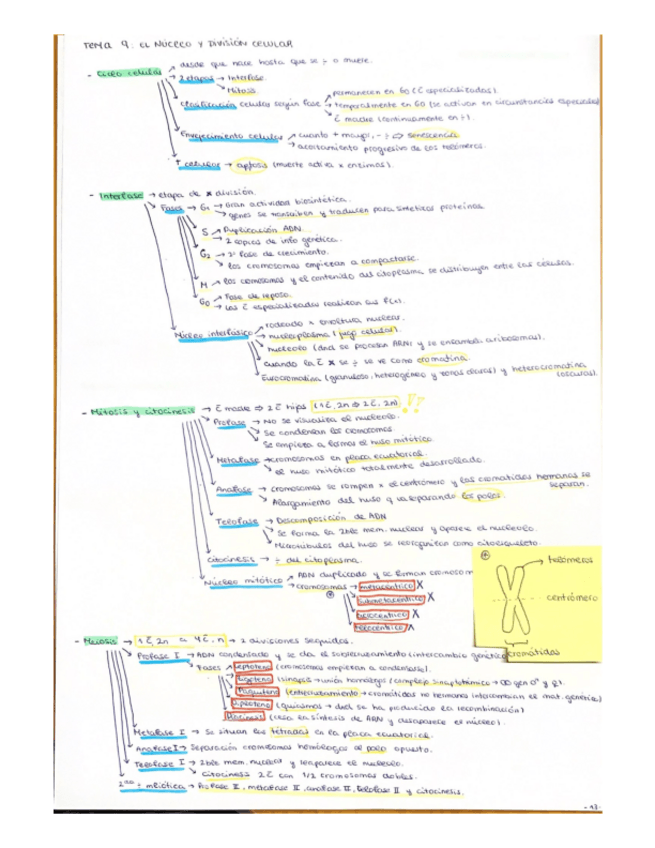 TEMA 9: EL NÚCLEO Y DIVISIÓN CELULAR
- Ciclo celular → desde que nace hasta que se ÷ o muere.
→ 2 etapas → Interfase.
→ Mitosis
→ Clasificación celular según fase → permanecen en G0 (c̄ especializadas).
→ temporalmente en G0 (se activan en circunstancias especiales)
→ c̄ madre (continuamente en ÷).
→ Envejecimiento celular → cuanto + mayor, - ÷ ⇨ senescencia
→ acortamiento progresivo de los telómeros.
→ † celular → (muerte activa x enzimas).
- Interfase → etapa de x división.
→ Fases → G1 → Gran actividad biosintética.
→ genes se transcriben y traducen para sintetizar proteínas.
→ S → Duplicación ADN.
→ 2 copias de info genética.
→ G2 → 2ª fase de crecimiento.
→ los cromosomas empiezan a compactarse.
→ M → los cromosomas y el contenido del citoplasma se distribuyen entre las células.
→ G0 → Fase de reposo.
→ las c̄ especializadas realizan sus f(x).
→ Núcleo interfásico → rodeado x envoltura nuclear.
→ nucleoplasma (jugo celular).
→ nucleolo (dnd se procesan ARNr y se ensambla ribosomas).
→ cuando la c̄ x se ÷ se ve como cromatina.
→ Eurocromatina (granuloso, heterogéneo y zonas claras) y heterocromatina (oscuras).
- Mitosis y citocinesis → c̄ madre ⇒ 2 c̄ hijas (1 c̄, 2n ⇒ 2 c̄, 2n)
→ Profase → No se visualiza el nucleolo.
→ Se condensan los cromosomas.
→ Se empieza a formar el huso mitótico.
→ Metafase → cromosomas en placa ecuatorial.
→ el huso mitótico totalmente desarrollado.
→ Anafase → cromosomas se rompen x el centrómero y las cromátidas hermanas se separan.
→ Alargamiento del huso y va separando los polos.
→ Telofase → Descomposición de ADN
→ Se forma la 2ble mem. nuclear y aparece el nucleolo.
→ Microtúbulos del huso se reorganizan como citoesqueleto.
→ citocinesis → ÷ del citoplasma.
→ Núcleo mitótico → ADN duplicado y se forman cromosom
→ cromosomas → metacéntrico X
⊕ submetacéntrico X
acrocéntrico X
telocéntrico ʌ
⊕
telómeros
centrómero
cromátidas
- Meiosis → 1 c̄, 2n a 4 c̄, n → 2 divisiones seguidas.
→ Profase I → ADN condensado y se da el sobrecruzamiento (intercambio genético)
→ Fases → Leptoteno (cromosomas empiezan a condensarse).
Zigoteno (sinapsis → unión homólogos (complejo sinaptotémico → gen ♂ y ♀).
Paquiteno (entrecruzamiento → cromátidas no hermanas intercambian el mat. genético)
Diploteno (quiasmas → dnd se ha producido la recombinación)
Diacinesis (cesa la síntesis de ARN y desaparece el núcleo).
→ Metafase I → Se sitúan las tétradas en la placa ecuatorial.
→ Anafase I → Separación cromosomas homólogos al polo opuesto.
→ Telofase I → 2ble mem. nuclear y reaparece el nucleolo.
→ citocinesis 2 c̄ con 1/2 cromosomas dobles.
2nda ÷ meiótica → Profase II, metafase II, anafase II, telofase II y citocinesis.